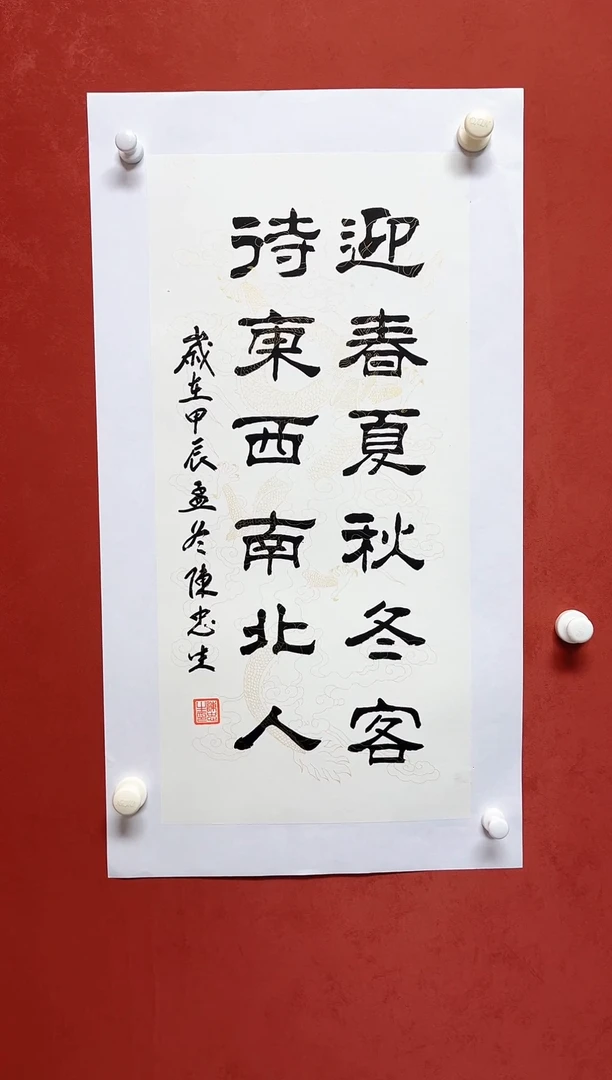 迎春夏秋冬客
待東西南北人
歲在甲辰孟冬陳忠生